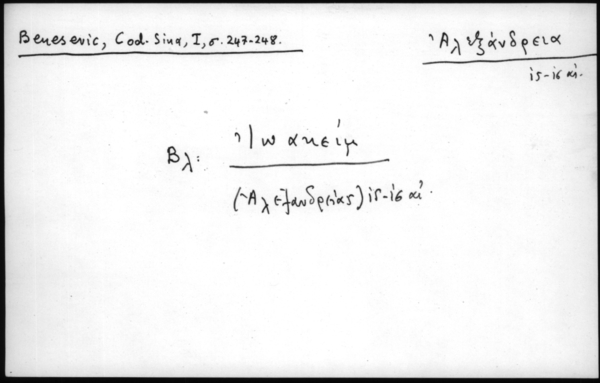 Benesevic, Cod. Sina, I, σ. 247-248.
Ἀλεξάνδρεια
ις-ιϛ αἰ.
Βλ: Ἰωακείμ
(Ἀλεξανδρείας) ις-ιϛ αἰ.